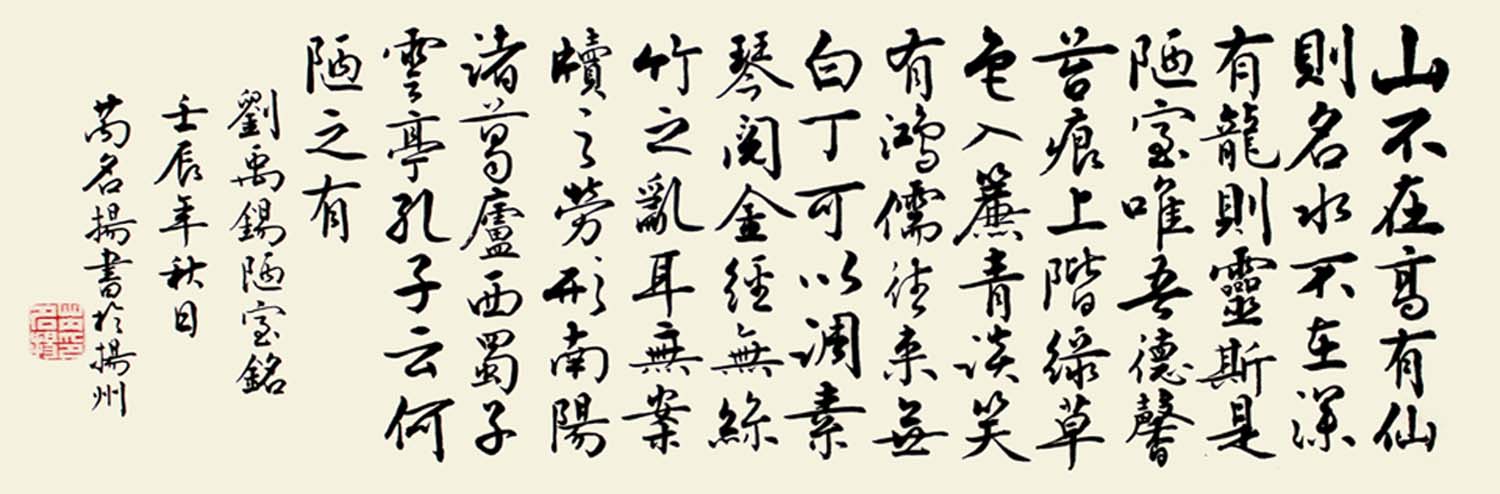 山不在高有仙
則名水不在深
有龍則靈斯是
陋室唯吾德馨
苔痕上階綠草
色入簾青談笑
有鴻儒往來無
白丁可以調素
琴閱金經無絲
竹之亂耳無案
牘之勞形南陽
諸葛廬西蜀子
雲亭孔子云何
陋之有
劉禹錫陋室銘
壬辰年秋日
芮名揚書於揚州